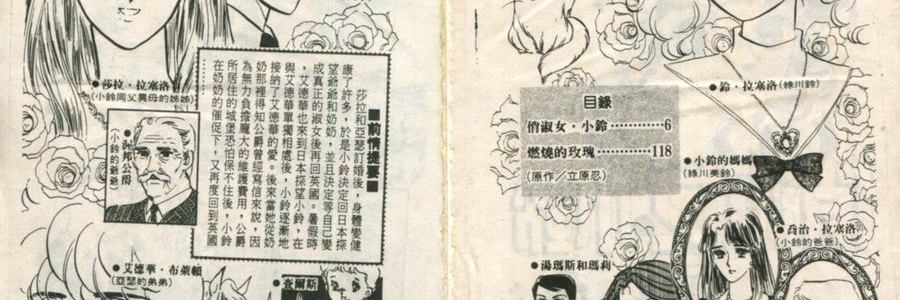 ●鈴・拉塞洛(綠川鈴)
目錄
俏淑女・小鈴…………6
燃燒的玫瑰…………118
(原作／立原忍)
●小鈴的媽媽
(綠川美鈴)
●喬治・拉塞洛
(小鈴的爸爸)
●湯瑪斯和瑪莉
●莎拉・拉塞洛
(小鈴同父異母的姊姊)
■前情提要■
莎拉和亞瑟訂婚後，身體變健
康了許多，於是小鈴決定回日本探
望爺爺和奶奶，並且決定等自己變
成真正的淑女後再回英國。暑假時
，艾德華也來到日本探望小鈴，在
與艾德華單獨相處後，小鈴逐漸地
接納了艾德華的愛。後來當她從奶
奶那裡得知公爵曾經寫信來說，因
為無力負擔龐大的維護費用，公爵
所居住的城堡恐怕保不住後，小鈴
在奶奶的催促下，又再度回到英國
……
公爵
(小鈴的爺爺)
●艾德華・布萊頓
(亞瑟的弟弟)
●查爾斯